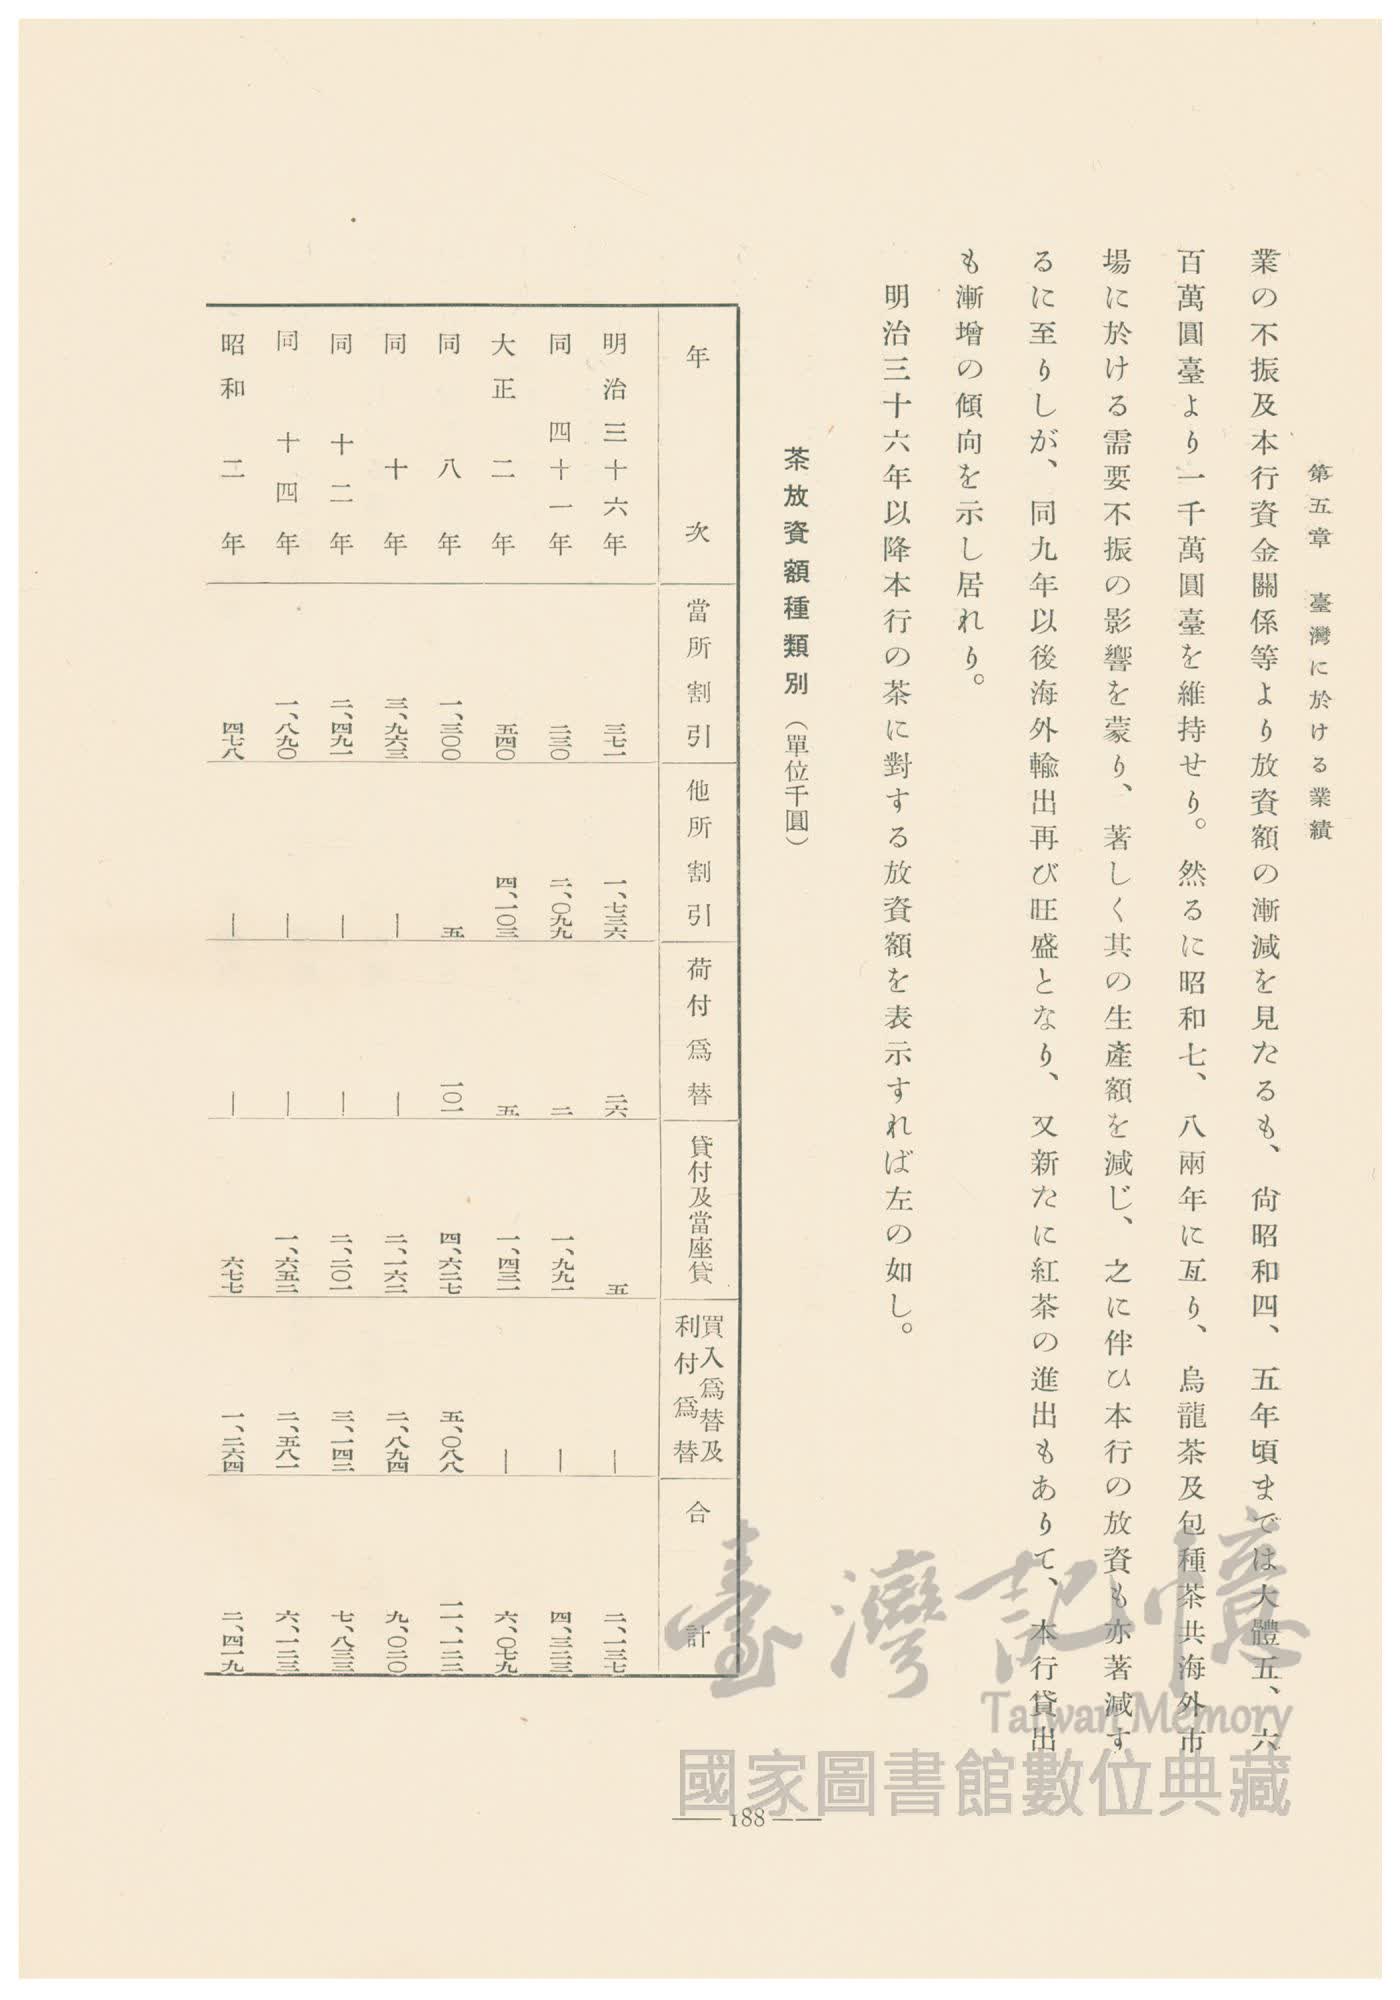 第五章　臺灣に於ける業績
業の不振及本行資金關係等より放資額の漸減を見たるも、尙昭和四、五年頃までは大體五、六
百萬圓臺より一千萬圓臺を維持せり。然るに昭和七、八兩年に亙り、烏龍茶及包種茶共海外市
場に於ける需要不振の影響を蒙り、著しく其の生產額を減じ、之に伴ひ本行の放資も亦著減す
るに至りしが、同九年以後海外輸出再び旺盛となり、又新たに紅茶の進出もありて、本行貸出
も漸增の傾向を示し居れり。
明治三十六年以降本行の茶に對する放資額を表示すれば左の如し。
茶放資額種類別（單位千圓）
年次　當所割引　他所割引　荷付爲替　貸付及當座貸　買入爲替及利付爲替　合計
明治三十六年　三七一　一、七三六　二六　五　―　二、一三七
同四十一年　二三〇　二、〇九九　二　一、九九一　―　四、三二三
大正二年　五四〇　四、一〇三　五　一、四三一　―　六、〇七九
同八年　一、三〇〇　五　一〇一　四、六二七　五、〇八八　一一、一二二
同十年　三、九六三　―　―　二、一六二　二、八九四　九、〇二〇
同十二年　二、四九一　―　―　二、二〇一　三、一四二　七、八三三
同十四年　一、八九〇　―　―　一、六五二　二、五八一　六、一二三
昭和二年　四七八　―　―　六七七　一、二六四　二、四一九
―188―
臺灣記憶
Taiwan Memory
國家圖書館數位典藏